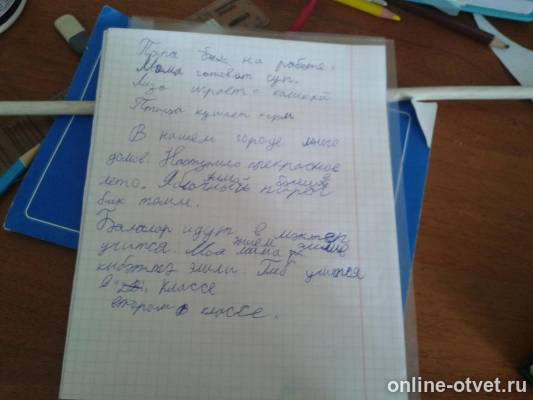 Папа был на работе.
Мама готовит суп.
Лиза играет с кошкой
Птица кушает корм
В нашем городе много
домов. Наступило прекрасное
лето. Яблочный пирог
бик темле.
Балалар идут в мәктәп
учится. Моя мама
кибеткә Глеб учится
в классе
втором классе.
online-otvet.ru